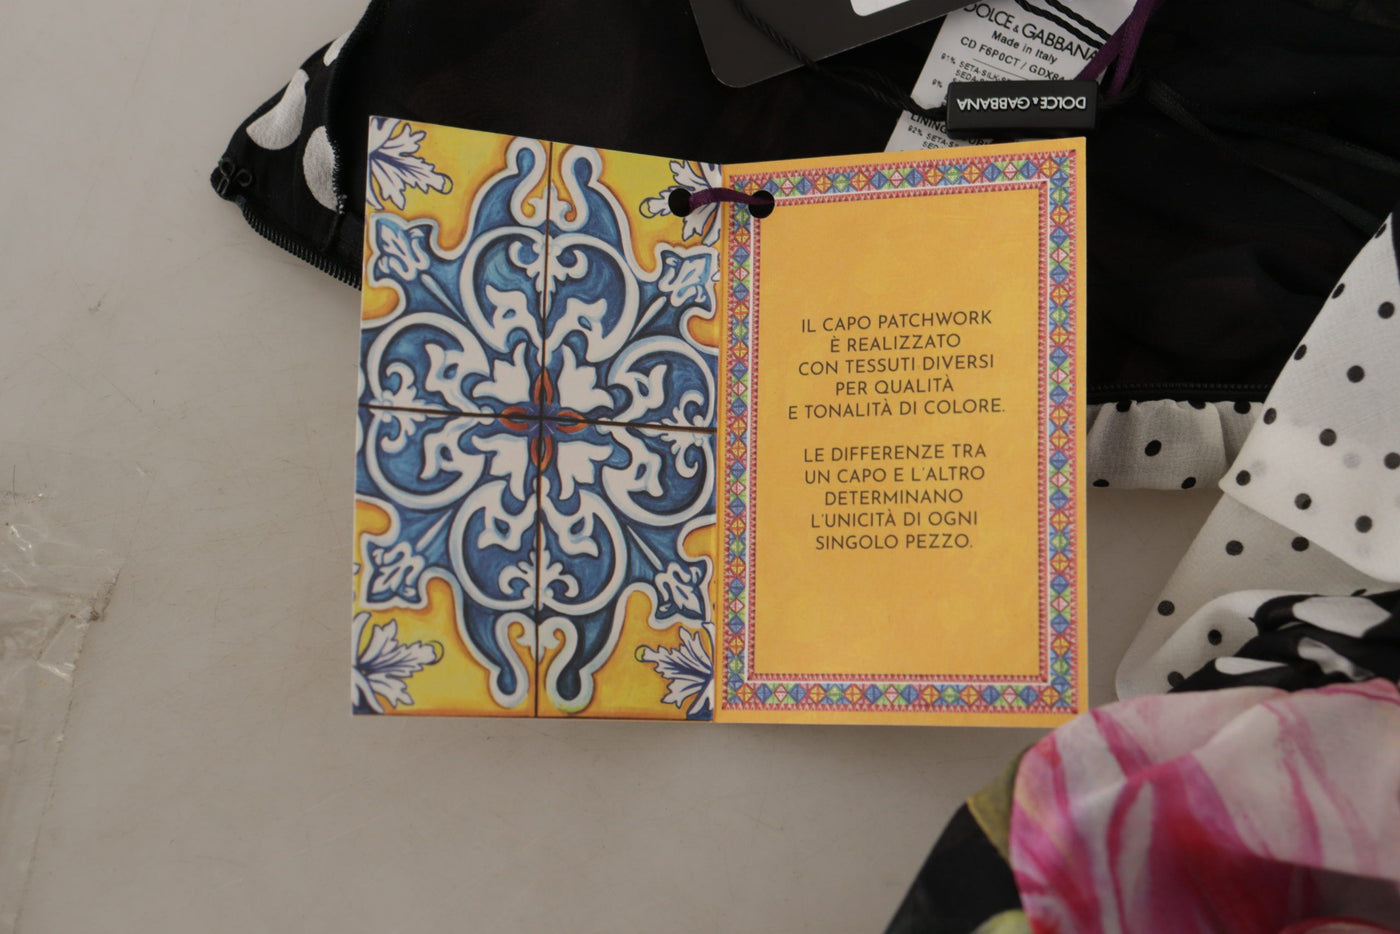 DOLCE & GABBANA
Made in Italy
CD F6P0CT / GDX8
91% SETA-SILK-S
9%
SEDA-
LINING
92% SETA-S
SED
DOLCE & GABBANA
IL CAPO PATCHWORK
È REALIZZATO
CON TESSUTI DIVERSI
PER QUALITÀ
E TONALITÀ DI COLORE.
LE DIFFERENZE TRA
UN CAPO E L'ALTRO
DETERMINANO
L'UNICITÀ DI OGNI
SINGOLO PEZZO.